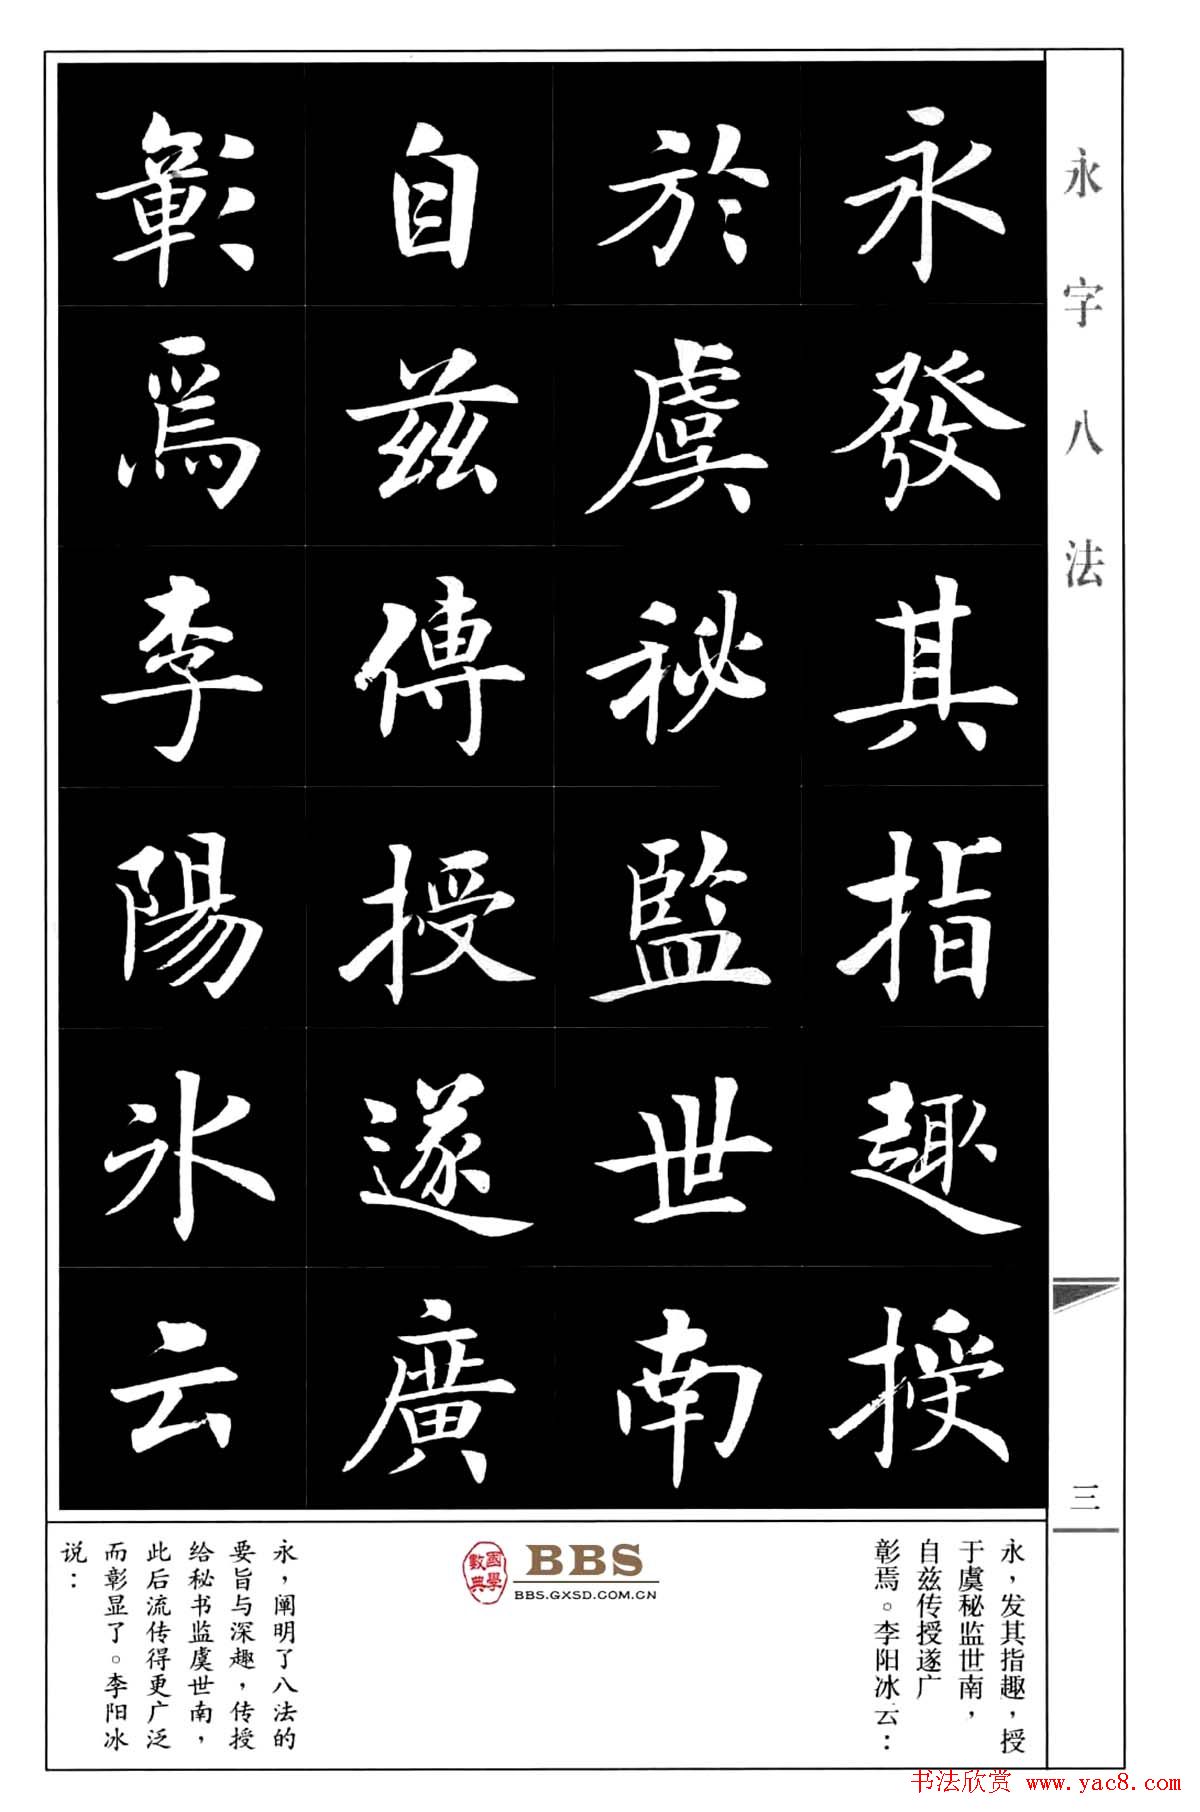 永字八法
三
永發其指趣授
於虞秘監世南
自兹傳授遂廣
彰焉李陽冰云
永，发其指趣，授
于虞秘监世南，
自兹传授遂广
彰焉。李阳冰云：
國學數典
BBS
BBS.GXSD.COM.CN
永，阐明了八法的
要旨与深趣，传授
给秘书监虞世南，
此后流传得更广泛
而彰显了。李阳冰
说：
书法欣赏 www.yac8.com